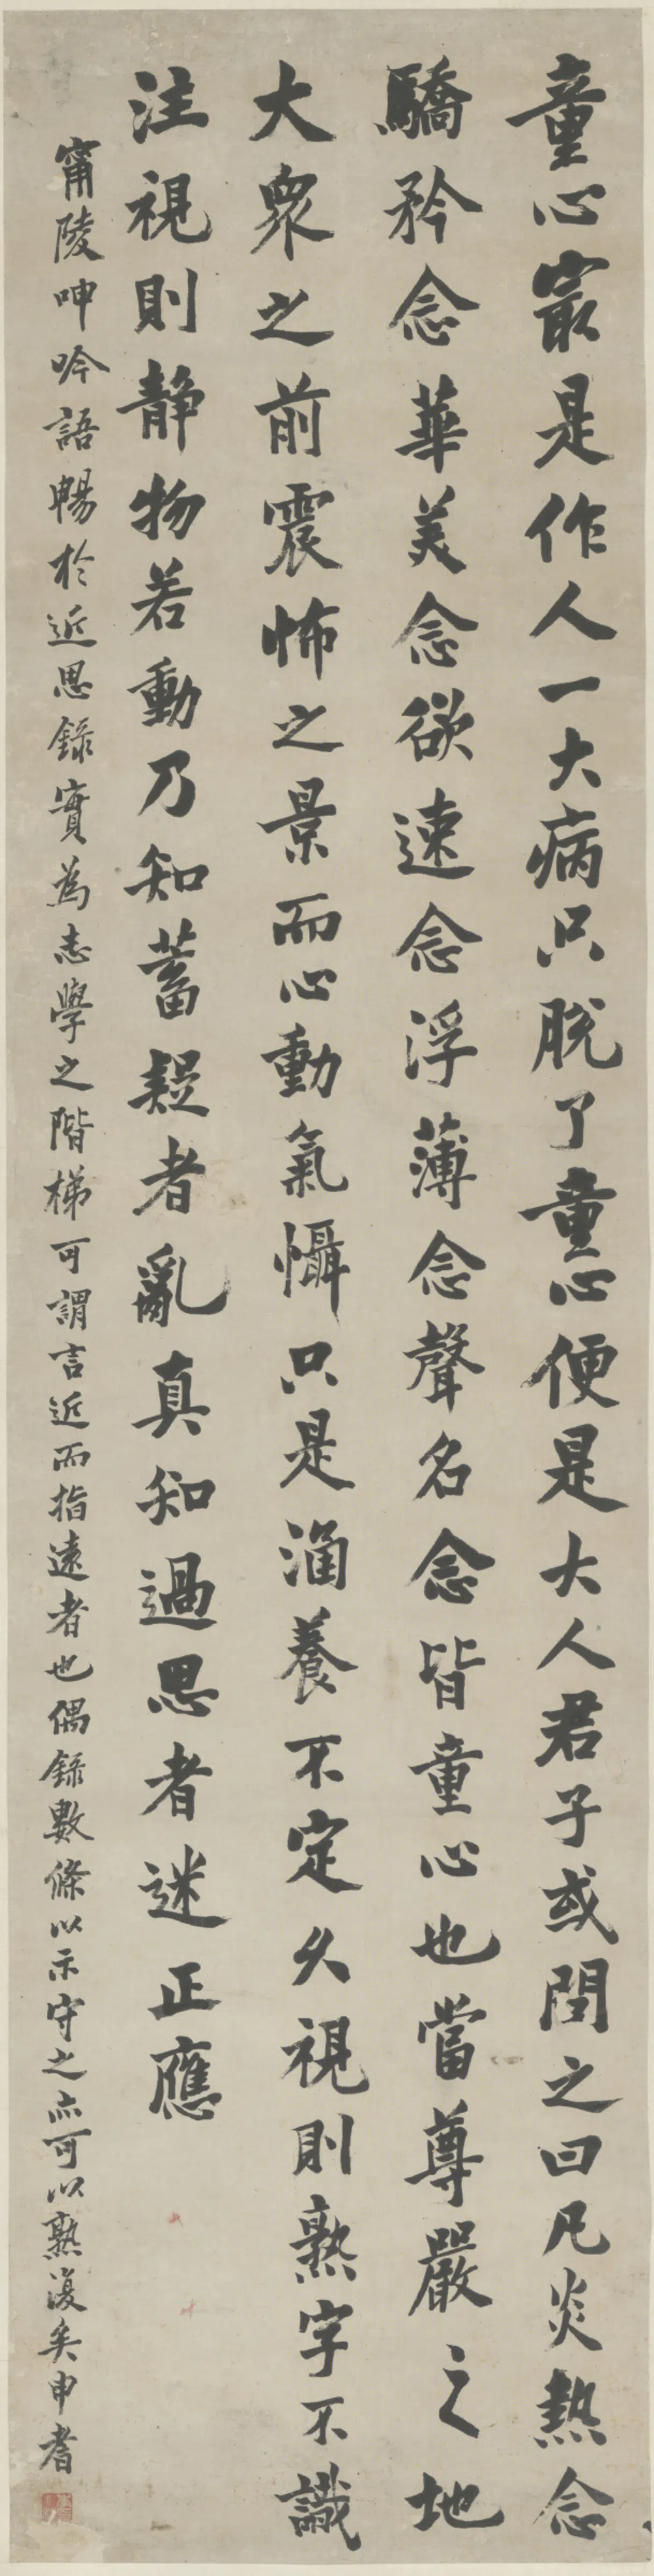 童心寂是作人一大病只脫了童心便是大人君子或問之曰凡炎熱念
驕矜念華美念欲速念浮薄念聲名念皆童心也當尊嚴之地
大眾之前震怖之景而心動氣懾只是涵養不定久視則熟字不識
注視則靜物若動乃知蓄疑者亂真知過思者迷正應
甯陵呻吟語暢於近思錄實為志學之階梯可謂言近而指遠者也偶錄數條以示守之亦可以熟復矣申耆